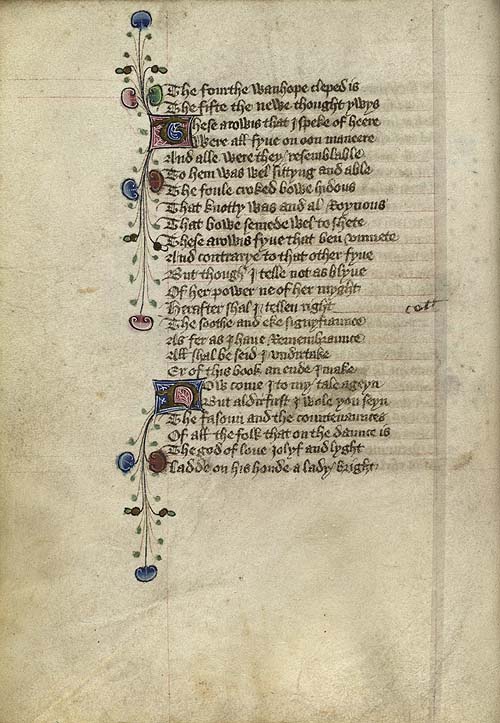 The fourthe wanhope cleped is
The fifte the newe thought ywys
These arowis that I speke of heere
Were all fyue on oon maneere
And alle were they resemblable
To hem was wel sittyng and able
The foule croked bowe hidous
That knotty was and al roynous
That bowe semede wel to shete
These arowis fyue that ben vnmete
And contrarye to that other fyue
But though I telle not as blyue
Of her power ne of her myght
Herafter shal I tellen right
The soothe and eke signyfiaunce
As fer as I haue remembraunce
All shal be seid I vndirtake
Er of this book an ende I make
Now come I to my tale ageyn
But aldirfirst I wole you seyn
The fasoun and the countenaunces
Of all the folk that on the daunce is
The god of loue iolyf and lyght
Ladde on his honde a lady bright